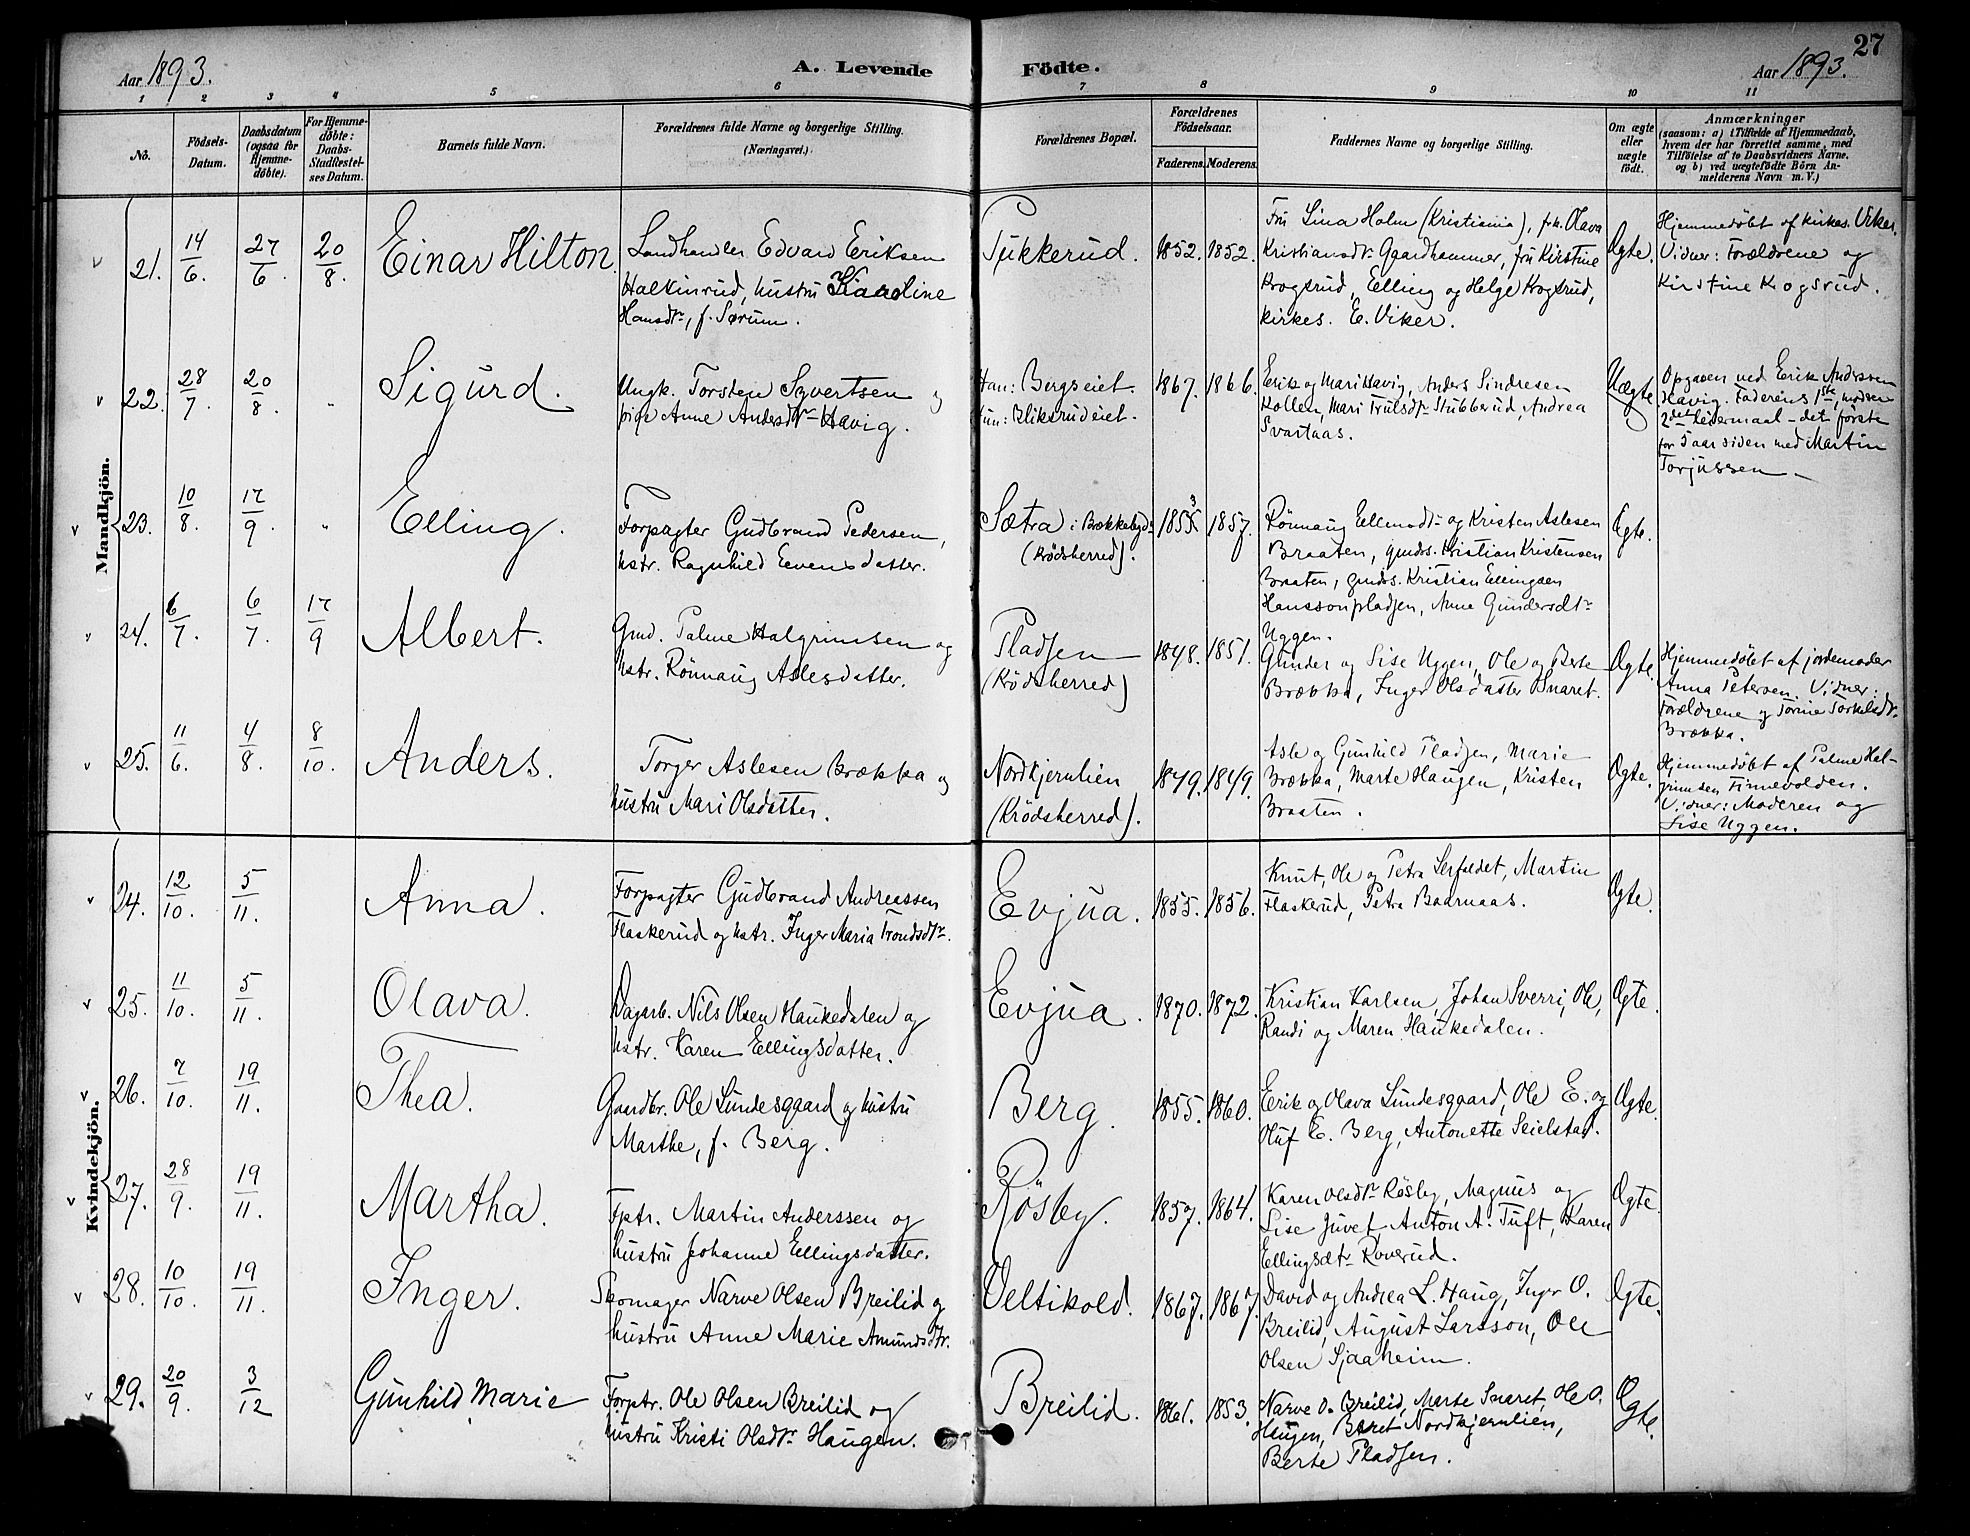 27
Aar 1893.
A. Levende Födte.
Aar 1893.
1 2 3 4 5 6 7 8 9 10 11
No.
Födsels-
Datum.
Daabsdatum
(ogsaa for
Hjemme-
döbte).
For Hjemme-
døbte:
Daabs-
Stadfestel-
ses Datum.
Barnets fulde Navn.
Forældrenes fulde Navne og borgerlige Stilling.
(Næringsvei.)
Forældrenes Bopæl.
Forældrenes
Födselsaar.
Faderens. Moderens.
Faddernes Navne og borgerlige Stilling.
Om ægte
eller
uægte
födt.
Anmærkninger
(saasom: a) i Tilfælde af Hjemmedaab,
hvem der har forrettet samme, med
Tilföielse af to Daabsvidners Navne,
og b) ved uægtefödte Börn An-
melderens Navn m. V.)
Mandkjön.
v 21. 14/6. 27/6. 20/8. Einar Hilton.
Landhandler Edvard Eriksen
Halkinrud, hustru Karoline
Hansdtr, f. Sørum.
Tukkerud. 1852. 1852.
Fru Lina Holm (Kristiania), frk. Olava
Kristiansdtr Gaardhammer, fru Kirstine
Krogsrud, Elling og Helge Krogsrud,
kirkes. E. Viker.
Ægte.
Hjemmedøbt af kirkes. Viker.
Vidner: Forældrene og
Kirstine Kogsrud.
v 22. 28/7. 20/8. " Sigurd.
Ungk. Torsten Syvertsen og
pige Anne Andersdtr Havig.
Han: Bergseiet.
Hun: Bliksrudeiet.
1867. 1866.
Erik og Mari Havig, Anders Sindresen
Kollen, Mari Trulsdtr Stubberud, Andrea
Svartaas.
Uægte
Opgaven ved Erik Andersen
Havig. Faderens 1ste, modren
2det Leiermaal - det første
for 5 aar siden med Martin
Torjussen -
v 23. 10/8. 17/9. " Elling.
Forpagter Gudbrand Pedersen,
hstr. Ragnhild Evensdatter.
Sætra i Brækkebygd
(Krödsherred).
1853. 1857.
Rönnaug Ellensdtr og Kristen Aslesen
Braaten, gmds. Kristian Kristensen
Braaten, gmds. Kristian Ellingsen
Hanssonpladsen, Anne Gundersdtr
Uggen.
Ægte.
v 24. 6/7. 6/7. 17/9 Albert.
Gmd. Palme Halgrimsen og
hstr. Rönnaug Aslesdatter.
Pladsen
(Krödsherred)
1848. 1851.
Gunder og Lise Uggen, Ole og Berte
Brækka, Inger Olsdatter Snaret.
Ægte.
Hjemmedøbt af jordemoder
Anna Petersen. Vidner:
Forældrene og Torine Torkelsdtr
Brækka.
v 25. 11/6. 4/8. 8/10. Anders.
Torger Aslesen Brækka og
hustru Mari Olsdatter.
Nordkjernlien
(Krödsherred).
1849. 1849.
Asle og Gunhild Pladsen, Marie
Brækka, Marte Haugen, Kristen
Braaten.
Ægte.
Hjemmedöbt af Palme Hal-
grimsen Finnevolden.
Vidner: Moderen og
Lise Uggen.
Kvindekjön.
v 24. 12/10. 5/11. Anna.
Forpagter Gudbrand Andreassen
Flaskerud og hstr. Inger Maria Trondsdtr.
Evjua. 1855. 1856.
Knut, Ole og Petra Leifaldet, Martin
Flaskerud, Petra Baarnaas.
Ægte.
v 25. 11/10. 5/11. Olava.
Dagarb. Nils Olsen Haukedalen og
hstr. Karen Ellingsdatter.
Evjua. 1870. 1872.
Kristian Karlsen, Johan Sverri, Ole,
Randi og Maren Haukedalen.
Ægte.
v 26. 7/10. 19/11. Thea.
Gaardbr. Ole Lundesgaard og hustru
Marthe, f. Berg.
Berg. 1855. 1860.
Erik og Olava Lundesgaard, Ole E. og
Oluf E. Berg, Antonette Seielstad.
Ægte.
v 27. 28/9. 19/11. Martha.
Fptr. Martin Anderssen og
hustru Johanne Ellingsdatter.
Rösby. 1857. 1864.
Karen Olsdtr Røsby, Magnus og
Lise Juvet, Anton A. Tuft, Karen
Ellingsdtr Roverud.
Ægte
v 28. 10/10. 19/11. Inger.
Skomager Narve Olsen Breilid og
hustru Anne Marie Amundsdtr.
Veltikold. 1867. 1867.
David og Andrea L. Haug, Inger O.
Breilid, August Larsson, Ole
Olsen Sjaaheim.
Ægte.
v 29. 20/9. 3/12 Gunhild Marie
Forptr. Ole Olsen Breilid og
hustru Kristi Olsdtr Haugen.
Breilid. 1861. 1853.
Narve O. Breilid, Marte Snaret, Ole O.
Haugen, Beret Nordkjernlien,
Berte Pladsen.
Ægte.